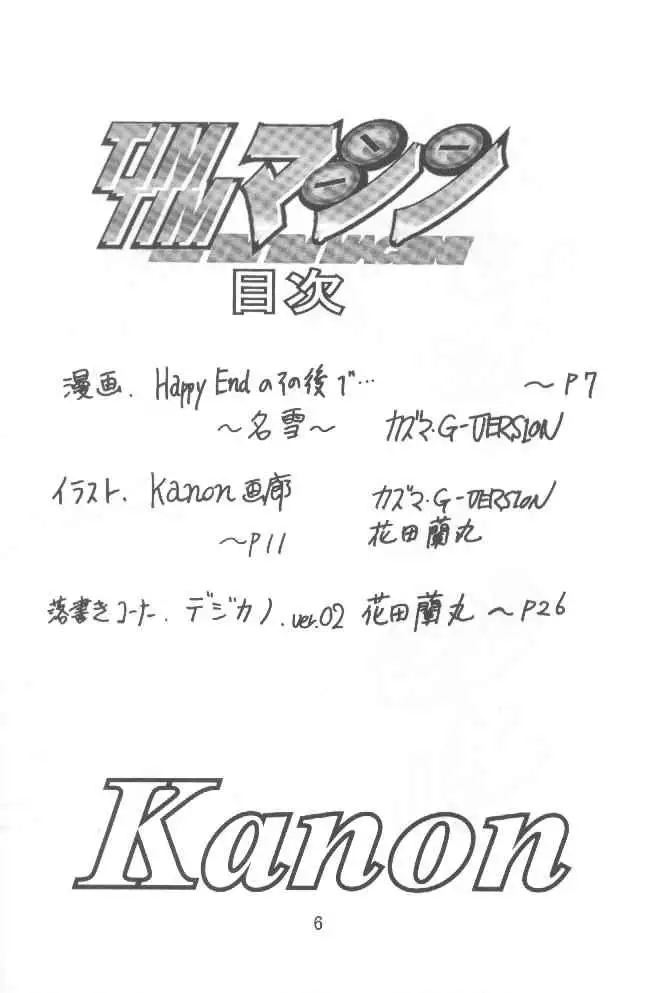 TIM TIM マシン
目次
漫画. Happy Endのその後で… 〜P7
〜名雪〜 カズマ・G-VERSION
イラスト. Kanon画廊 カズマ・G-VERSION
〜P11 花田蘭丸
落書きコーナー. デジカノ. ver.02 花田蘭丸 〜P26
Kanon
6